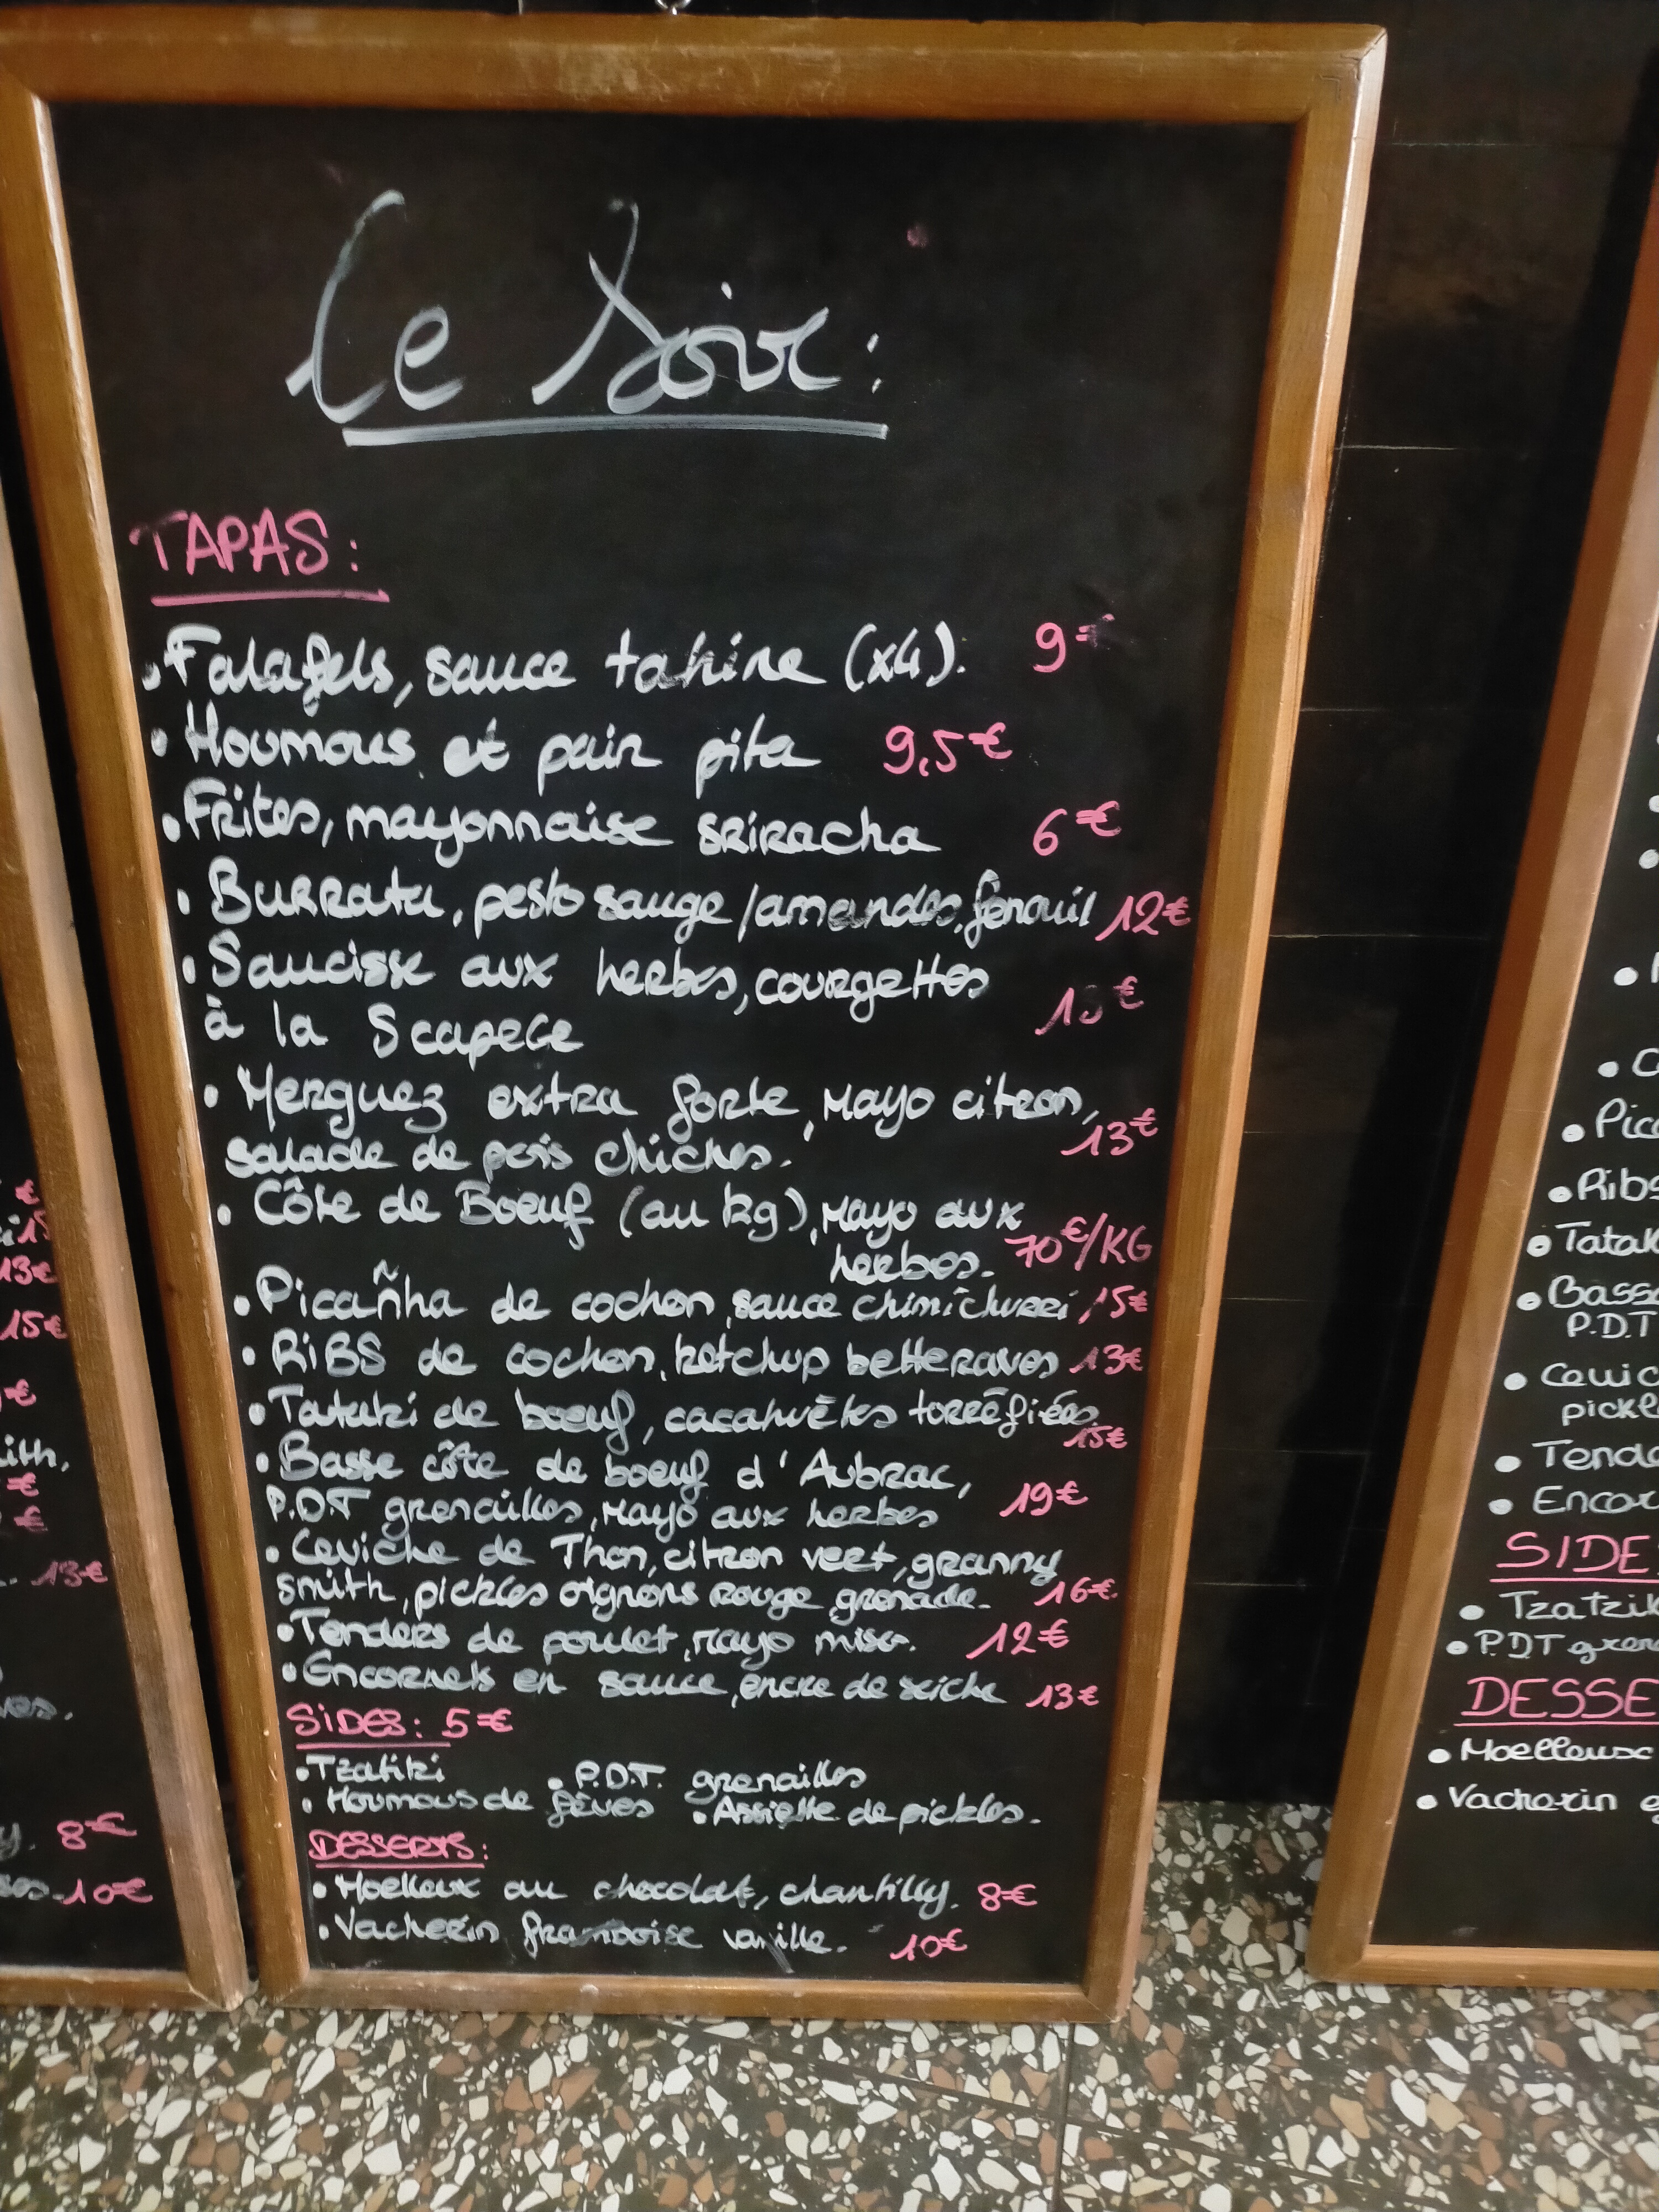 Ce Soir:
TAPAS:
• Falafels, sauce tahine (x4). 9€
• Houmous et pain pita 9,5€
• Frites, mayonnaise sriracha 6€
• Burrata, pesto sauge/amandes, fenouil 12€
• Saucisse aux herbes, courgettes
à la Scapece
• Merguez extra forte, Mayo citron,
salade de pois chiches. 13€
• Côte de Boeuf (au kg), Mayo aux
herbes. 70€/KG
• Picañha de cochon, sauce chimichurri 15€
• RiBS de cochon, ketchup betteraves 13€
• Tataki de boeuf, cacahuètes torréfiées
15€
• Basse côte de boeuf d'Aubrac,
P.D.T grenailles, Mayo aux herbes 19€
• Ceviche de Thon, citron vert, granny
smith, pickles oignons rouge, grenade. 16€
• Tenders de poulet, Mayo miso. 12€
• Encornets en sauce, encre de seiche 13€
SiDES: 5€
• Tzatiki • P.D.T. grenailles
• Houmous de fèves • Assiette de pickles.
DESSERTS:
• Moelleux au chocolat, chantilly. 8€
• Vacherin framboise vanille. 10€
13€
15€
€
ith,
€
€
13€
8€
10€
• Ribs
P.D.T
• P.D.T
• Moelleux
• Vacherin